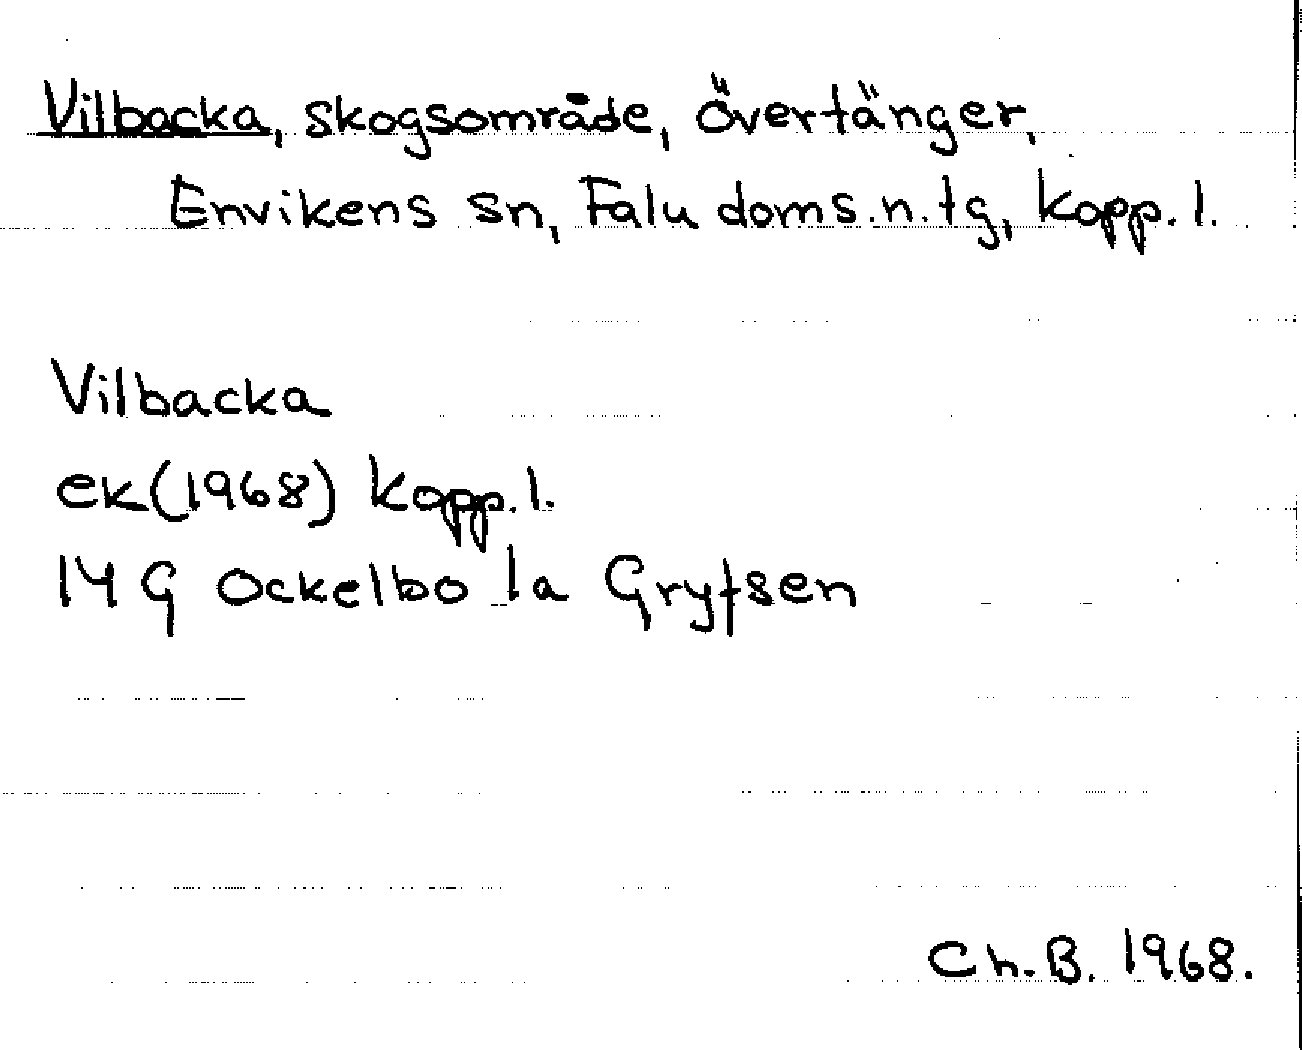 Vilbacka, skogsområde, Övertänger,
Envikens sn, Falu doms.n.tg, Kopp.l.
Vilbacka
ek(1968) Kopp.l.
14 G Ockelbo 1a Grytsen
Ch.B. 1968.